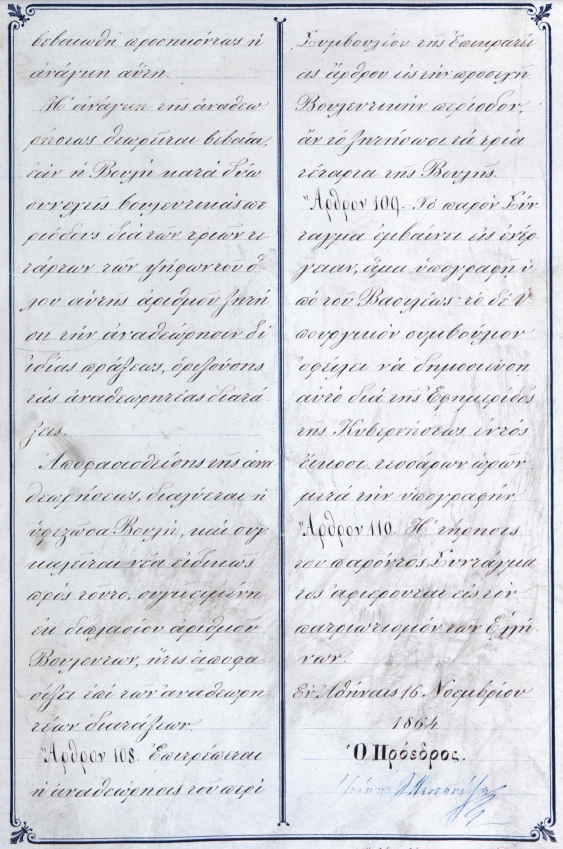 βεβαιωθῇ προσηκόντως ἡ
ἀνάγκη αὕτη.
Ἡ ἀνάγκη τῆς ἀναθεω
ρήσεως θεωρεῖται βεβαία,
ἐὰν ἡ Βουλὴ κατὰ δύω
συνεχεῖς βουλευτικὰς πε
ριόδους διὰ τῶν τριῶν τε
τάρτων τῶν ψήφων τοῦ ὅ
λου αὐτῆς ἀριθμοῦ ζητή
σῃ τὴν ἀναθεώρησιν δι'
ἰδίας πράξεως, ὁριζούσης
τὰς ἀναθεωρητέας διατά
ξεις.
Ἀποφασισθείσης τῆς ἀνα
θεωρήσεως, διαλύεται ἡ
ὑφεστῶσα Βουλή, καὶ συγ
καλεῖται νέα εἰδικῶς
πρὸς τοῦτο, συγκειμένη
ἐκ διπλασίου ἀριθμοῦ
Βουλευτῶν, ἥτις ἀποφα
σίζει ἐπὶ τῶν ἀναθεωρη
τέων διατάξεων.
Ἄρθρον 108. Ἐπιτρέπεται
ἡ ἀναθεώρησις τοῦ περὶ
Συμβουλίου τῆς Ἐπικρατεί
ας ἄρθρου εἰς τὴν προσεχῆ
Βουλευτικὴν περίοδον,
ἂν τὸ ζητήσωσι τὰ τρία
τέταρτα τῆς Βουλῆς.
Ἄρθρον 109. Τὸ παρὸν Σύν
ταγμα ἐμβαίνει εἰς ἐνέρ
γειαν, ἅμα ὑπογραφῇ ὑ
πὸ τοῦ Βασιλέως· τὸ δὲ ὑ
πουργικὸν συμβούλιον
ὀφείλει νὰ δημοσιεύσῃ
αὐτὸ διὰ τῆς Ἐφημερίδος
τῆς Κυβερνήσεως ἐντὸς
εἴκοσι τεσσάρων ὡρῶν
μετὰ τὴν ὑπογραφήν.
Ἄρθρον 110. Ἡ τήρησις
τοῦ παρόντος Συντάγμα
τος ἀφιεροῦται εἰς τὸν
πατριωτισμὸν τῶν Ἑλλή
νων.
Ἐν Ἀθήναις 16 Νοεμβρίου
1864.
Ὁ Πρόεδρος.